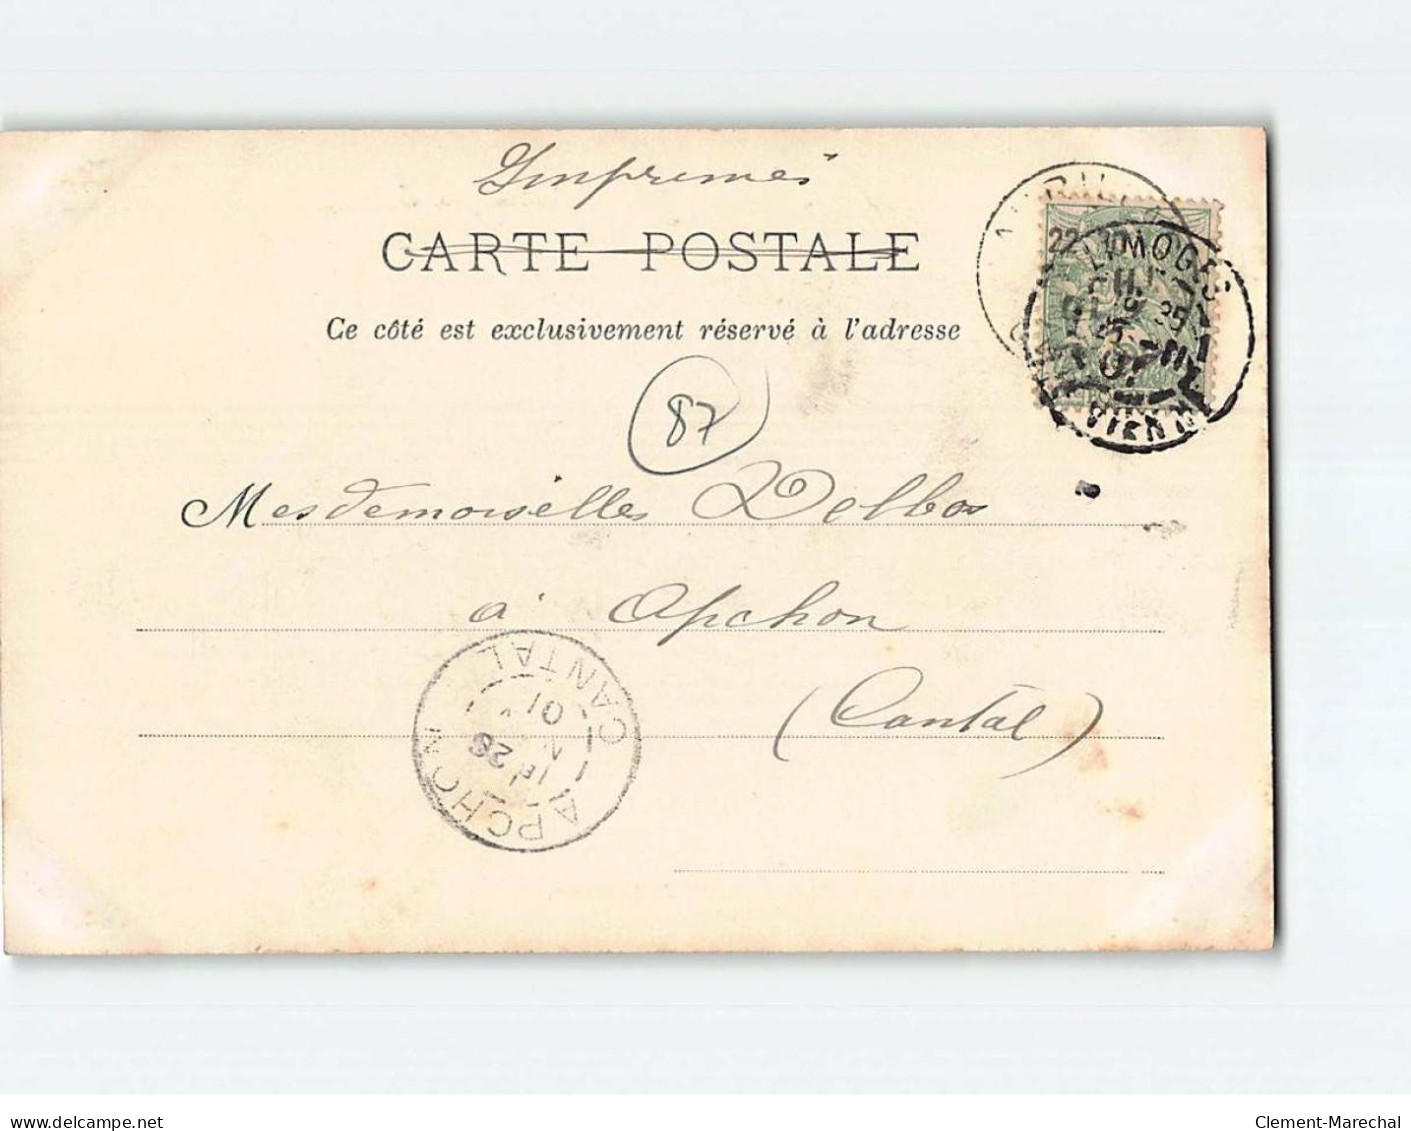 Imprimés
CARTE POSTALE
Ce côté est exclusivement réservé à l'adresse
LIMOGES
22
01
VIENNE
87
Mesdemoiselles Delbos
à Apchon
(Cantal)
APCHON
CANTAL
26
01
delcampe.net
Clement-Marechal